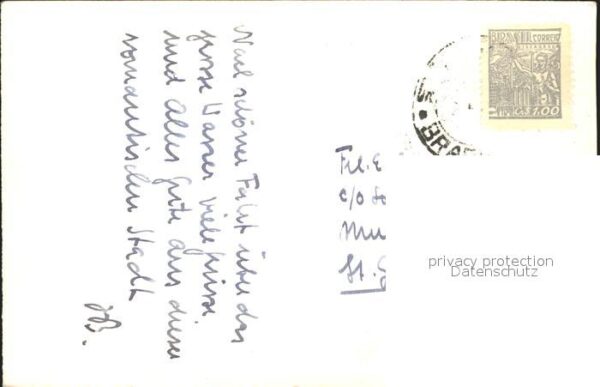 Nach schöner Fahrt über das
grosse Wasser viele Grüsse
und alles Gute aus dieser
romantischen Stadt
HB.
BRASIL CORREIO
CR$ 1,00
BRAS
Frl. E
c/o
Mu
St. G
privacy protection
Datenschutz